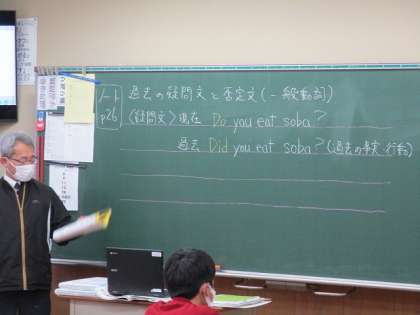 ノート p26
過去の疑問文と否定文(一般動詞)
〈疑問文〉現在 Do you eat soba?
過去 Did you eat soba?(過去の事実・行動)